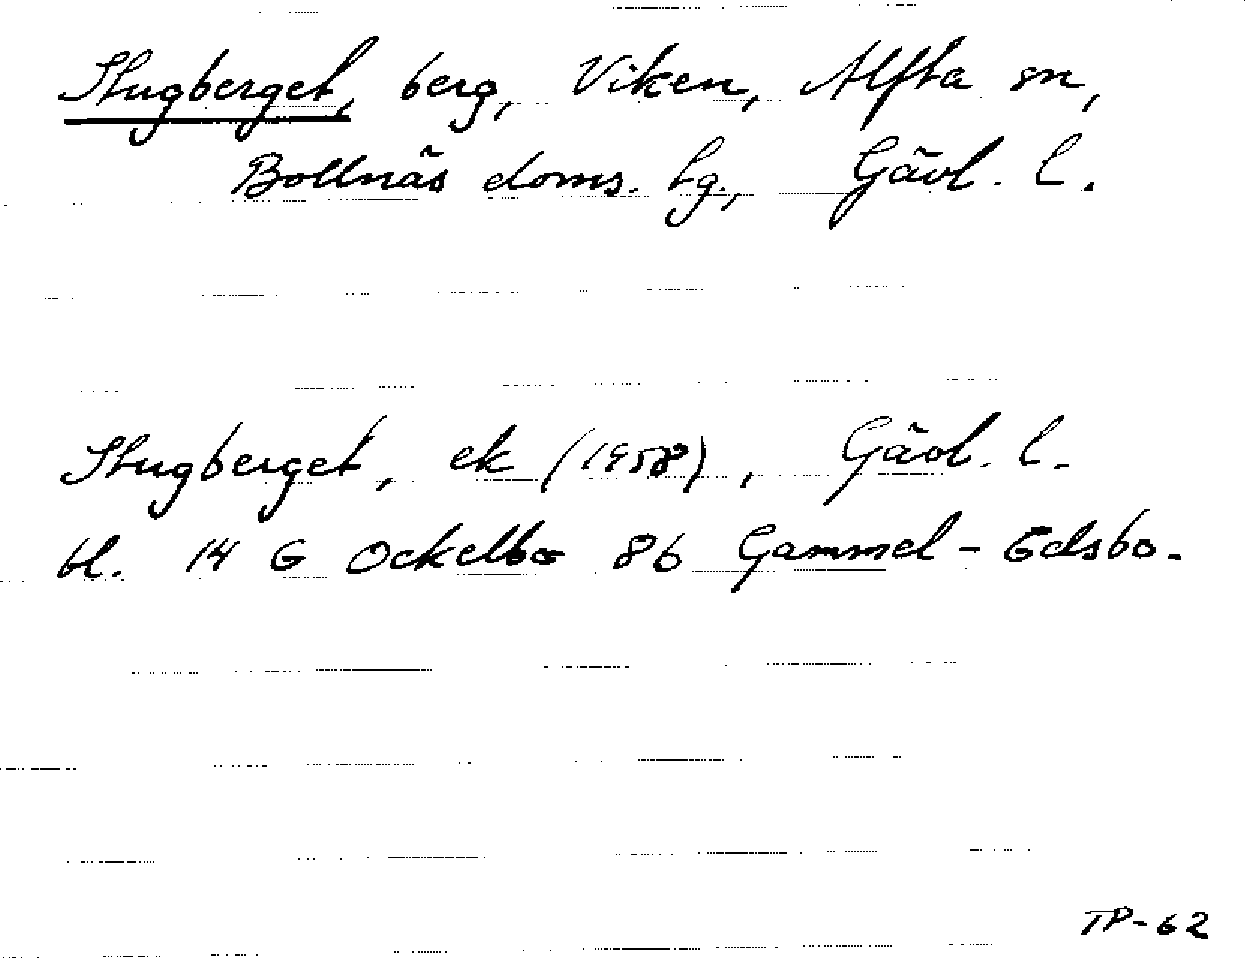 Stugberget, berg, Viken, Alfta sn,
Bollnäs doms. lg., Gävl. l.
Stugberget, ek (1958), Gävl. l.
bl. 14 G Ockelbo 8b Gammel-Edsbo.
TP-62